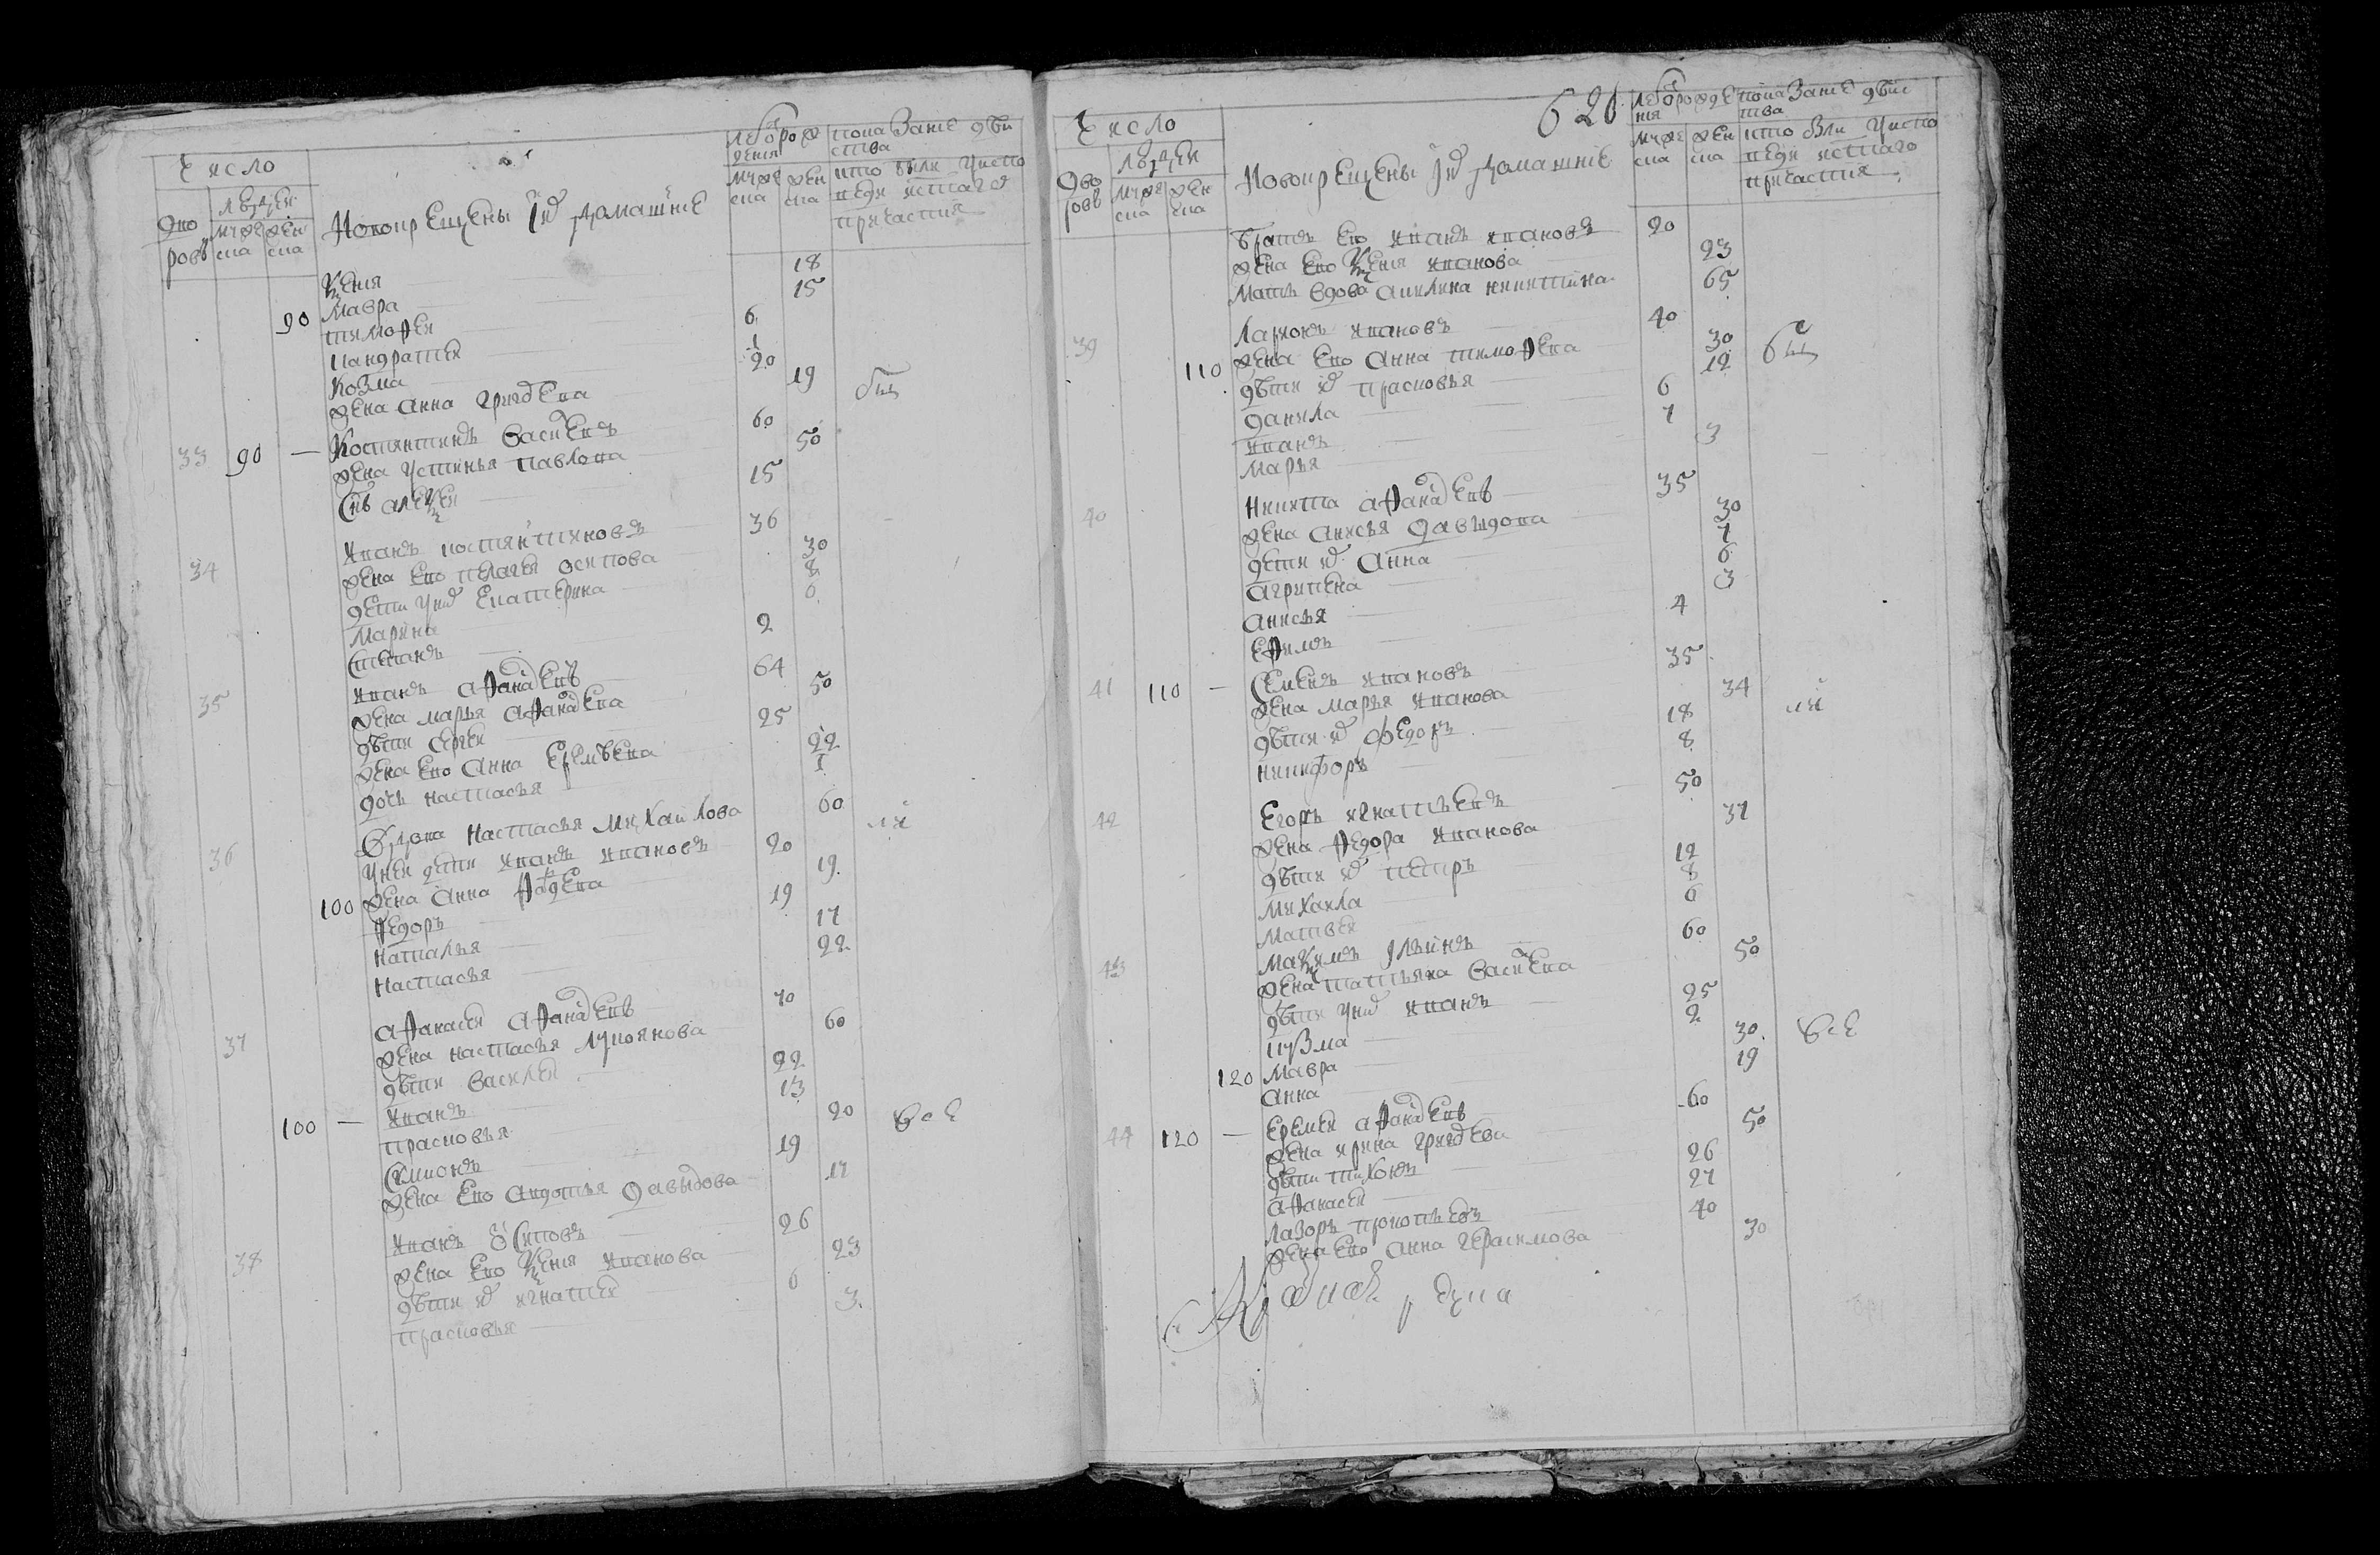 Число
Дво ровъ
людей
мужеска
женска
Новокрещены и их домашние
Лет от рождения
мужеска
женска
показание действа кто были у исповеди и святаго причастия
Ксения 18
90 Мавра 15
Тимофей 6
Панкратей 1
Козма 20
жена Анна Григорьева 19
33 90 — Костянтинъ Васильевъ 60
жена Устинья Павлова 50
сынъ Алексей 15
34 Иванъ Костянтиновъ 36
жена ево Пелагея Осипова 30
дети у них Екатерина 8
Марина 6
Степанъ 2
35 Иванъ Афанасьевъ 64
жена Марья Афанасьева 50
дѣти Сергей 25
жена ево Анна Еремѣева 22
дочь Настасья 1
36 Вдова Настасья Михайлова 60
у ней дети Иванъ Ивановъ 20
100 жена Анна Фадеева 19
Федоръ 19
Наталья 17
Настасья 22
37 Афанасей Афанасьевъ 70
жена Настасья Лукоянова 60
дѣти Василей 22
Иванъ 13
100 — Прасковья 20 все
Симионъ 19
жена ево Авдотья Давыдова 17
38 Иванъ Осиповъ 26
жена ево Ксения Иванова 23
дѣти их Игнатей 6
Прасковья 3
620
Число
Дво ровъ
людей
мужеска
женска
Новокрещены и их домашние
лет от рождения
мужеска
женска
показание действа
кто были у исповеди и святаго причастия
братъ ево Иванъ Ивановъ 20
жена ево Ксения Иванова 23
мать вдова Акилина Никитина 65
39 Ларионъ Ивановъ 40
110 жена ево Анна Тимофеева 30
дѣти их Прасковья 12
Данила 6
Иванъ 7
Марья 3
40 Никита Афанасьевъ 35
жена Анисья Давыдова 30
дети их Анна 7
Агрипена 6
Анисья 3
Ефимъ 4
41 110 — Семенъ Ивановъ 35
жена Марья Иванова 34
дѣти их Федоръ 18
Никифоръ 8
42 Егоръ Игнатьевъ 50
жена Федора Иванова 37
дѣти их Петръ 12
Михаила 8
Матвей 6
43 Максимъ Ильинъ 60
жена Татьяна Васильева 50
дѣти у них Иванъ 25
Кузма 2
120 Мавра 30 все
Анна 19
44 120 — Еремей Афанасьевъ 60
жена Ирина Григорьева 50
дѣти Тихонъ 26
Афанасей 27
Лазоръ Прокопьевъ 40
жена ево Анна Герасимова 30